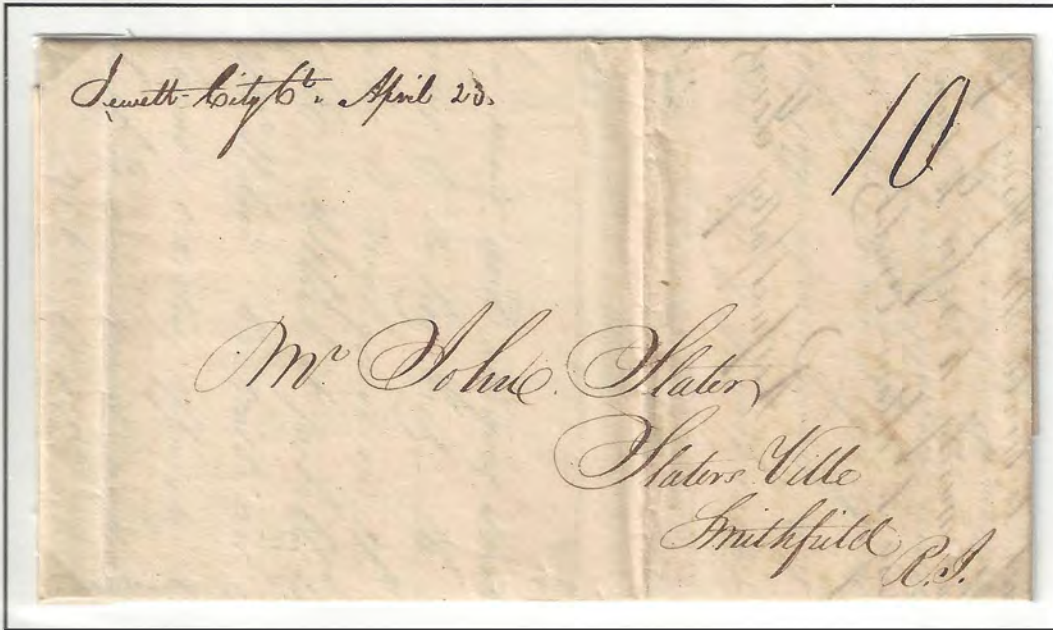 Jewett-City Ct. April 23.
10
Mr. John Slater
Slaters Ville
Smithfield
R.I.